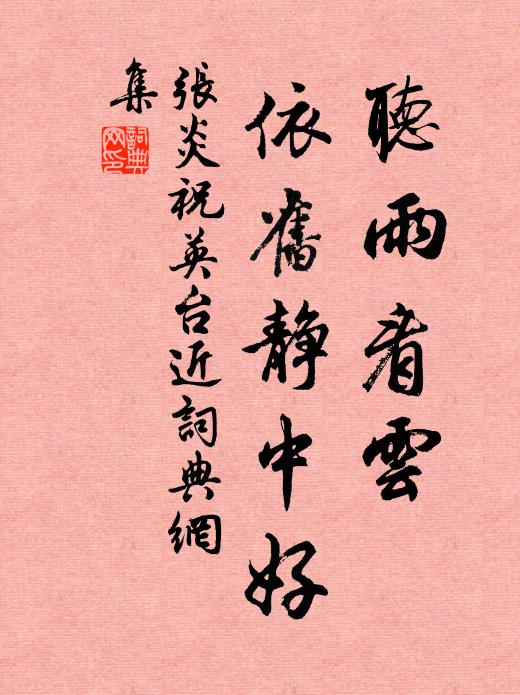 聽雨看雲
依舊靜中好
張炎祝英台近詞典網
集
詞典網印